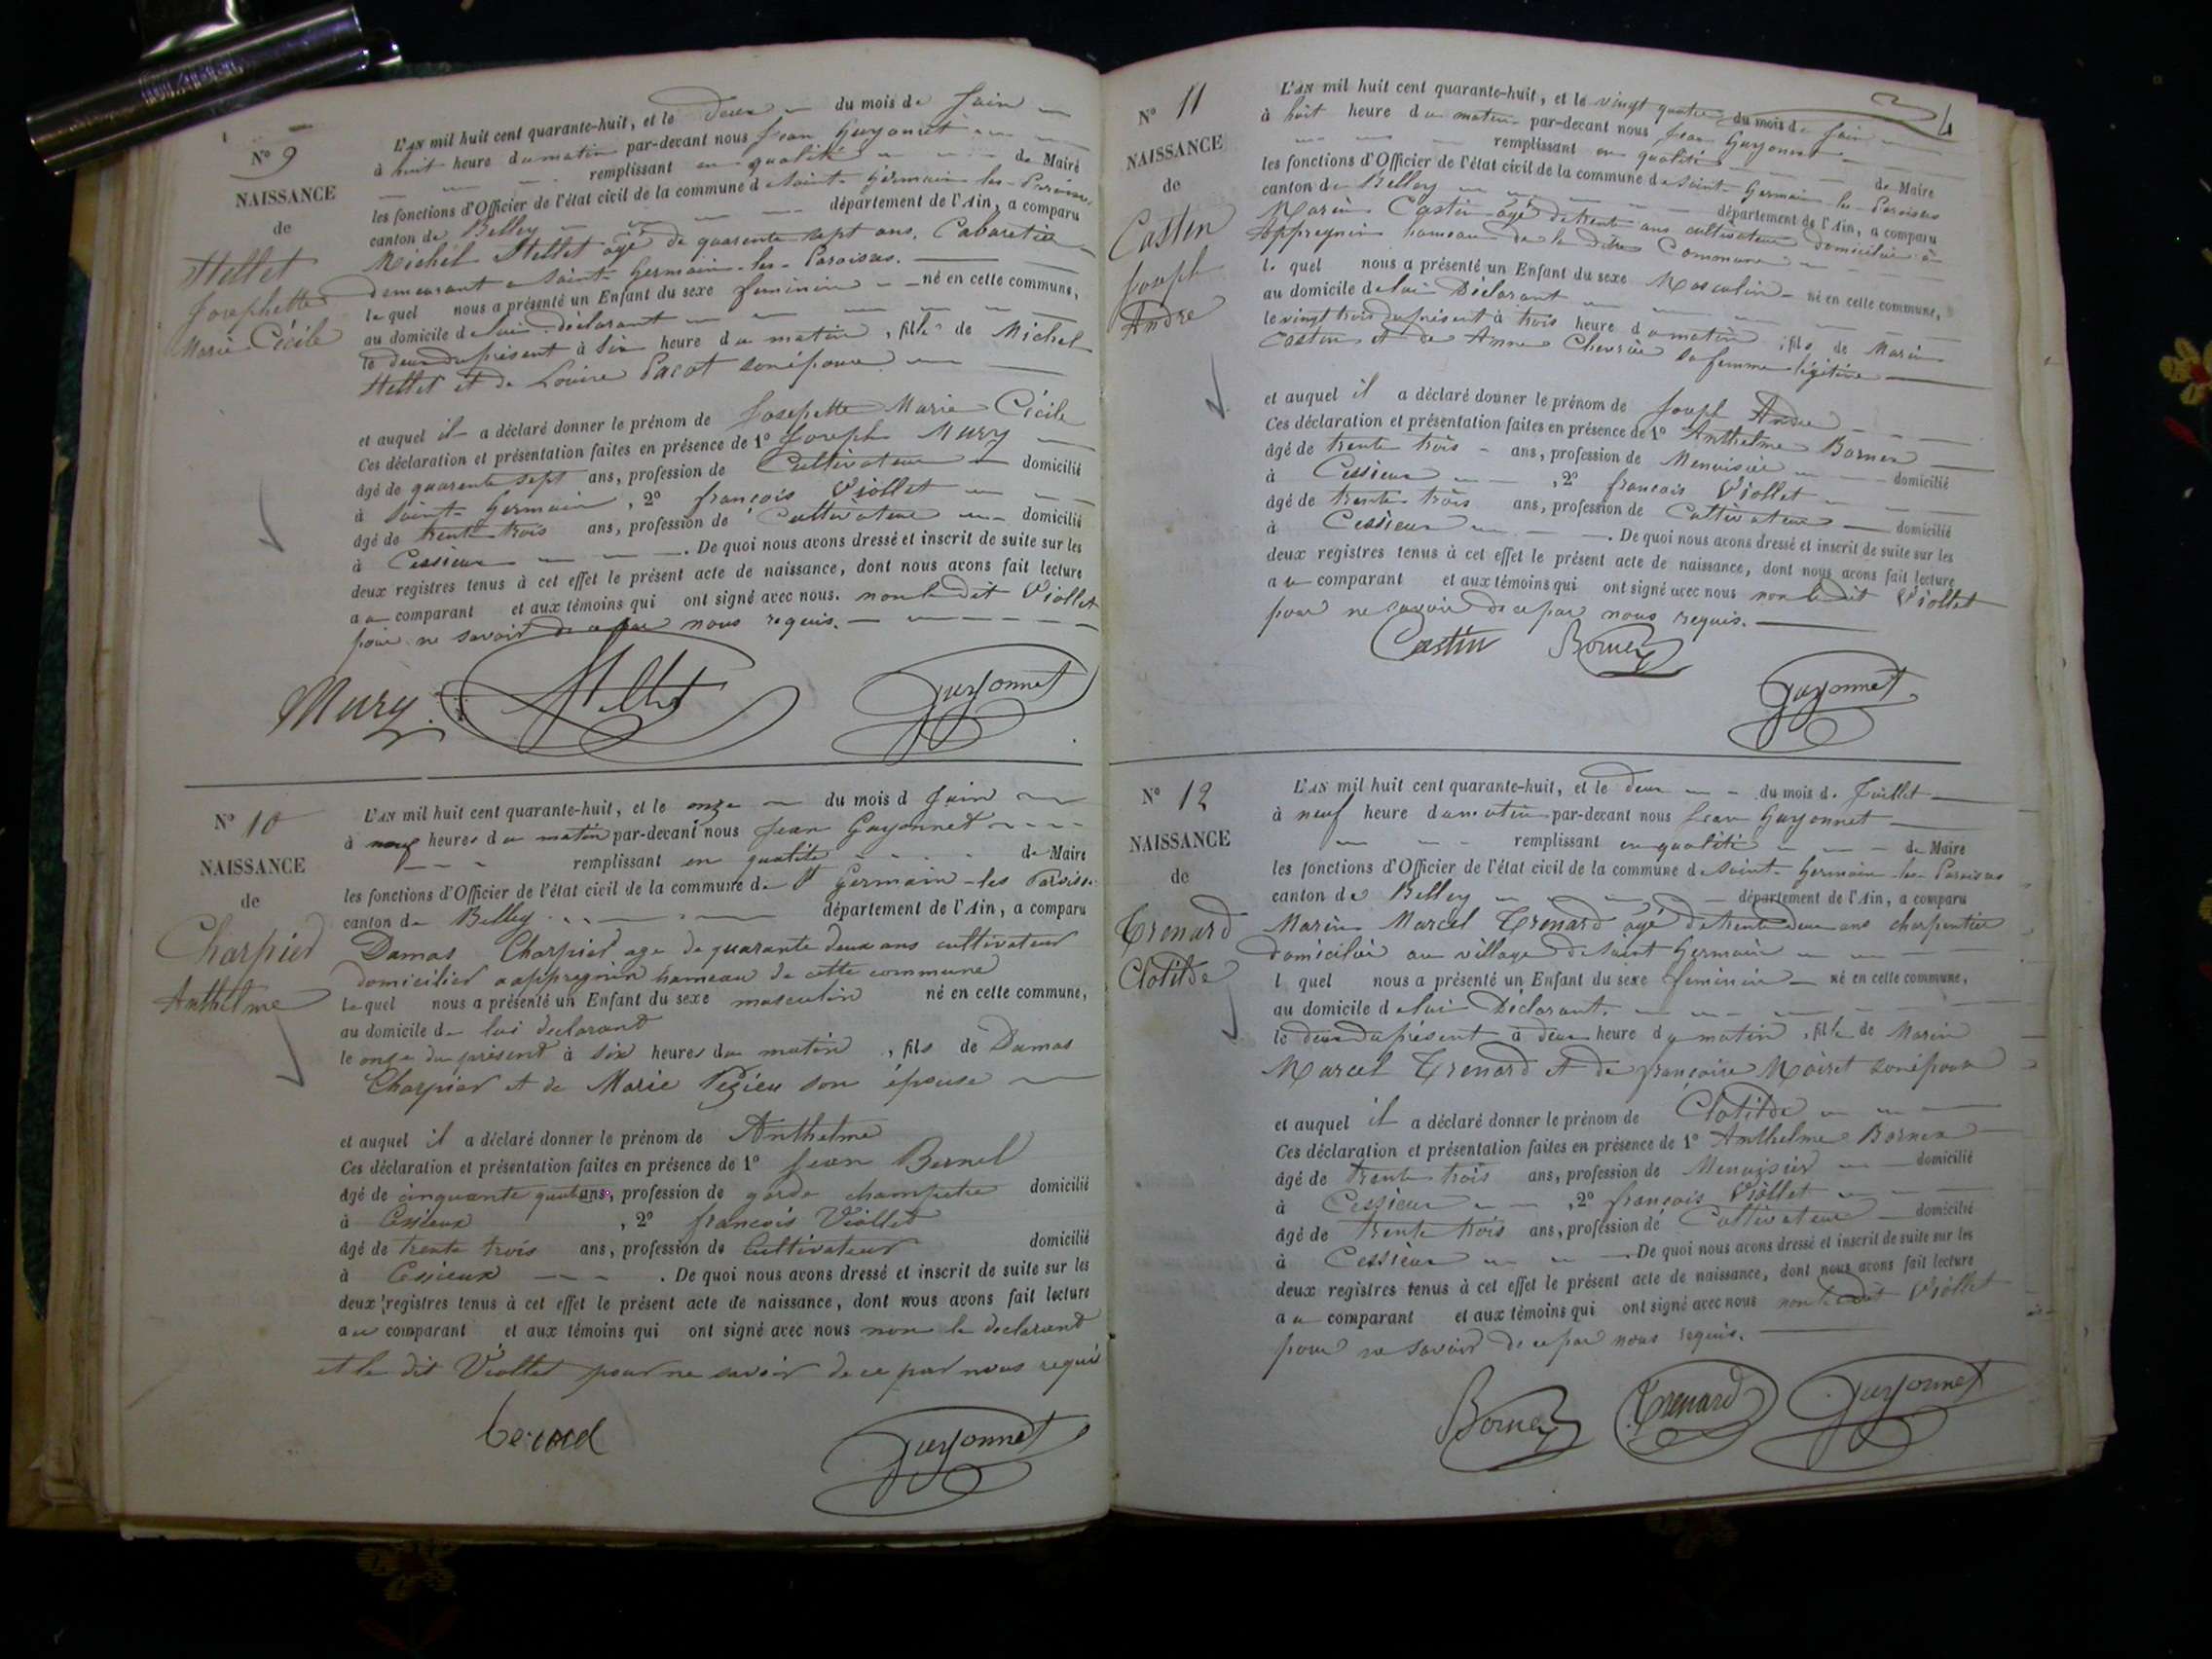 N° 9
NAISSANCE
de
Stellet
Josephette
Marie Cécile
L'AN mil huit cent quarante-huit, et le deux du mois de Juin
à huit heure du matin par-devant nous Jean Guyonnet
remplissant en qualité de Maire
les fonctions d'Officier de l'état civil de la commune de Saint-Germain-les-Paroisses
canton de Belley département de l'Ain, a comparu
Michel Stellet agé de quarente-sept ans, Cabaretier
demeurant a Saint-Germain-les-Paroisses.
lequel nous a présenté un Enfant du sexe feminin né en cette commune,
au domicile de lui déclarant
le deux du présent à six heure du matin, fille de Michel
Stellet et de Louise Pacot son épouse
et auquel il a déclaré donner le prénom de Josephette Marie Cécile
Ces déclaration et présentation faites en présence de 1° Joseph Mury
âgé de quarente sept ans, profession de Cultivateur domicilié
à Saint-Germain, 2° françois Viollet
âgé de trente trois ans, profession de Cultivateur domicilié
à Cessieux. De quoi nous avons dressé et inscrit de suite sur les
deux registres tenus à cet effet le présent acte de naissance, dont nous avons fait lecture
au comparant et aux témoins qui ont signé avec nous. non le dit Viollet
pour ne savoir de ce par nous requis.
Mury Stellet Guyonnet
N° 10
NAISSANCE
de
Charpied
Anthelme
L'AN mil huit cent quarante-huit, et le onze du mois d Juin
à neuf heures du matin par-devant nous Jean Guyonnet
remplissant en qualité de Maire
les fonctions d'Officier de l'état civil de la commune de St Germain-les Paroisses
canton de Belley département de l'Ain, a comparu
Damas Charpied age de quarante deux ans cultivateur
domicilier a appregnin hameau de cette commune
lequel nous a présenté un Enfant du sexe masculin né en cette commune,
au domicile de lui declarant
le onze du présent à six heures du matin, fils de Damas
Charpied et de Marie Pezieu son épouse
et auquel il a déclaré donner le prénom de Anthelme
Ces déclaration et présentation faites en présence de 1° Jean
âgé de cinquante quatre ans, profession de garde champetre domicilié
à Cesieux, 2° francois Viollet
âgé de trente trois ans, profession de Cultivateur domicilié
à Cesieux. De quoi nous avons dressé et inscrit de suite sur les
deux registres tenus à cet effet le présent acte de naissance, dont nous avons fait lecture
au comparant et aux témoins qui ont signé avec nous non le declarant
et le dit Viollet pour ne savoir de ce par nous requis
Guyonnet
4
N° 11
NAISSANCE
de
Castin
Joseph
André
L'AN mil huit cent quarante-huit, et le vingt quatre du mois de Juin
à huit heure du matin par-devant nous Jean Guyonnet
remplissant en qualité de Maire
les fonctions d'Officier de l'état civil de la commune de Saint-Germain-les-Paroisses
canton de Belley département de l'Ain, a comparu
Marin Castin agé de trente ans cultivateur domicilié à
appregnin hameau de la dite Commune
l. quel nous a présenté un Enfant du sexe Masculin né en cette commune,
au domicile de lui Déclarant
le vingt trois du présent à trois heure du matin, fils de Marin
Castin et de Anne Chevrier sa femme légitime
et auquel il a déclaré donner le prénom de Joseph André
Ces déclaration et présentation faites en présence de 1° Anthelme Bornex
âgé de trente trois ans, profession de Menuisier domicilié
à Cessieux, 2° francois Viollet
âgé de trente trois ans, profession de Cultivateur domicilié
à Cessieux. De quoi nous avons dressé et inscrit de suite sur les
deux registres tenus à cet effet le présent acte de naissance, dont nous avons fait lecture
au comparant et aux témoins qui ont signé avec nous non le dit Viollet
pour ne savoir de ce par nous requis.
Castin Bornex
Guyonnet
N° 12
NAISSANCE
de
Trenard
Clotilde
L'AN mil huit cent quarante-huit, et le deux du mois de Juillet
à neuf heure du matin par-devant nous Jean Guyonnet
remplissant en qualité de Maire
les fonctions d'Officier de l'état civil de la commune de Saint-Germain-les-Paroisses
canton de Belley département de l'Ain, a comparu
Marin Marcel Trenard agé de trente deux ans charpentier
domicilié au village de Saint Germain
l quel nous a présenté un Enfant du sexe feminin né en cette commune,
au domicile de lui Déclarant.
le deux du présent à deux heure du matin, fille de Marin
Marcel Trenard et de françoise Moiret son épouse
et auquel il a déclaré donner le prénom de Clotilde
Ces déclaration et présentation faites en présence de 1° Anthelme Bornex
âgé de trente trois ans, profession de Menuisier domicilié
à Cessieux, 2° francois Viollet
âgé de trente trois ans, profession de Cultivateur domicilié
à Cessieux De quoi nous avons dressé et inscrit de suite sur les
deux registres tenus à cet effet le présent acte de naissance, dont nous avons fait lecture
au comparant et aux témoins qui ont signé avec nous non le dit Viollet
pour ne savoir de ce par nous requis.
Bornex Trenard Guyonnet